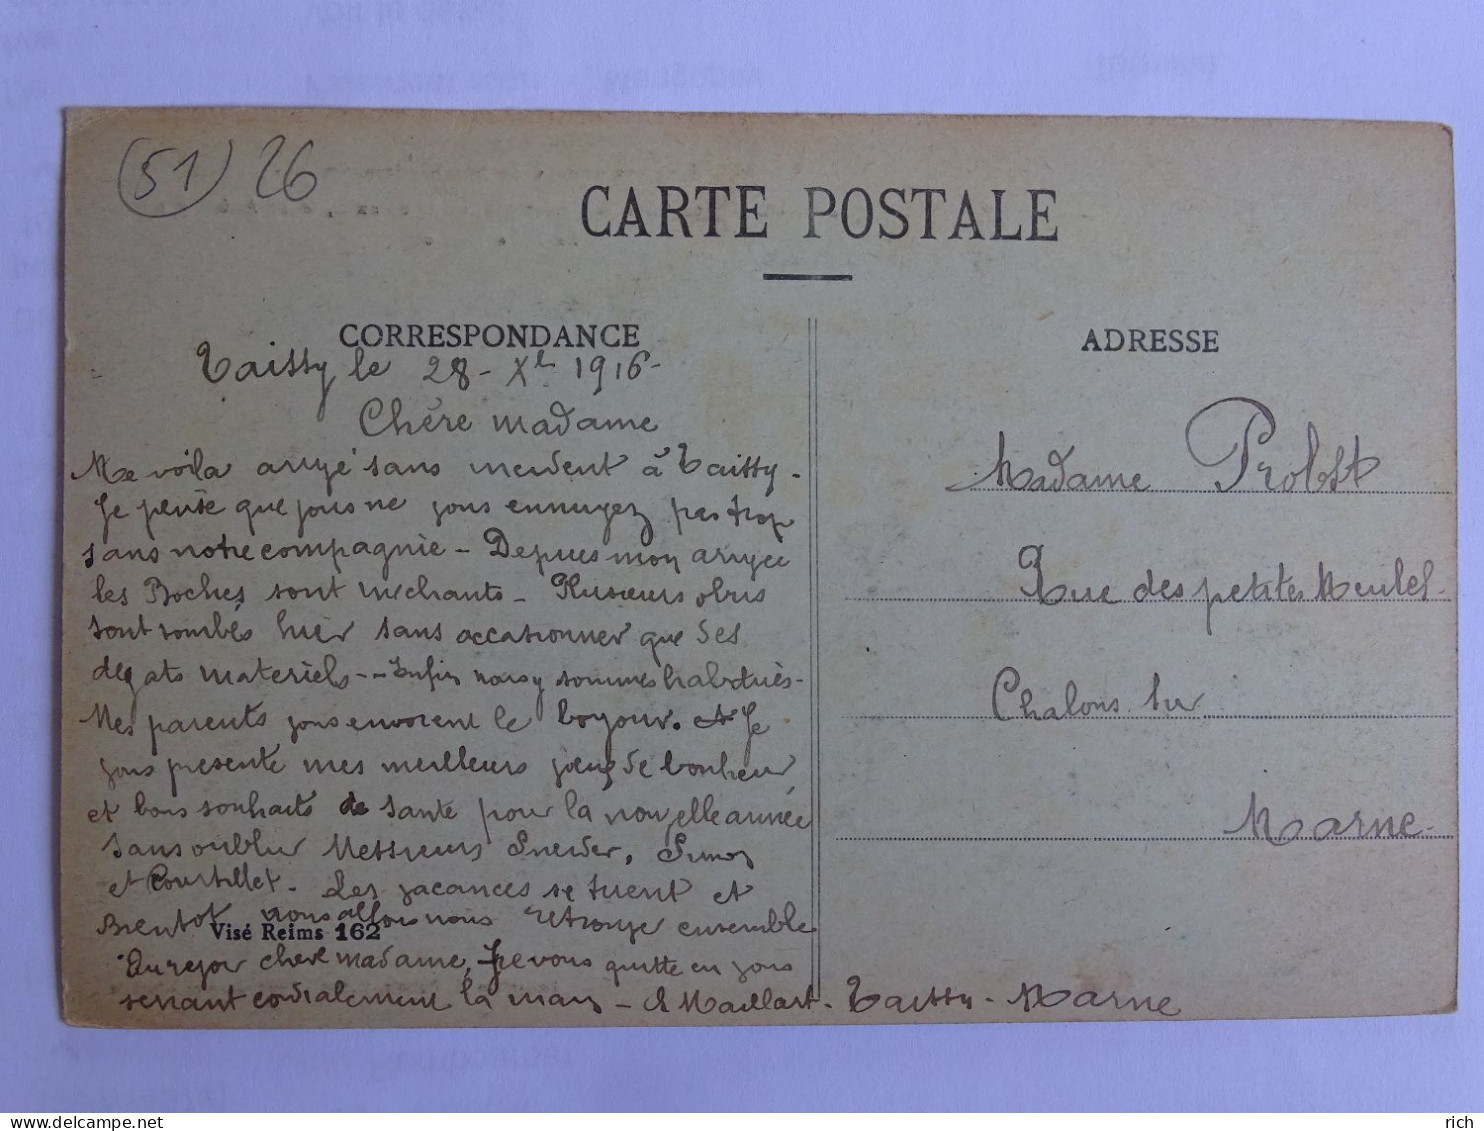 (51) 26
CARTE POSTALE
CORRESPONDANCE
ADRESSE
Taissy le 28 - Xbre 1916 -
Chère madame
Me voila arrivé sans incident à Taissy -
Je pense que vous ne vous ennuyez pas trop
sans notre compagnie - Depuis mon arrivée
les Boches sont mechants - Plusieurs obus
sont tombés hier sans occasionner que des
degats materièls - - Enfin nous y sommes habitués -
Mes parents vous envoient le bonjour. et Je
vous presente mes meilleurs vœux de bonheur
et bons souhaits de santé pour la nouvelle année
sans oublier Messieurs Sneider, Simon
et Courtillet. Les vacances se tirent et
Bientot nous allons nous retrouver ensemble
Au revoir chère madame, Je vous quitte en vous
serrant cordialement la main - Maillart - Taissy - Marne
Visé Reims 162
Madame Probst
Rue des petites Meules
Chalons sur
Marne -
rich